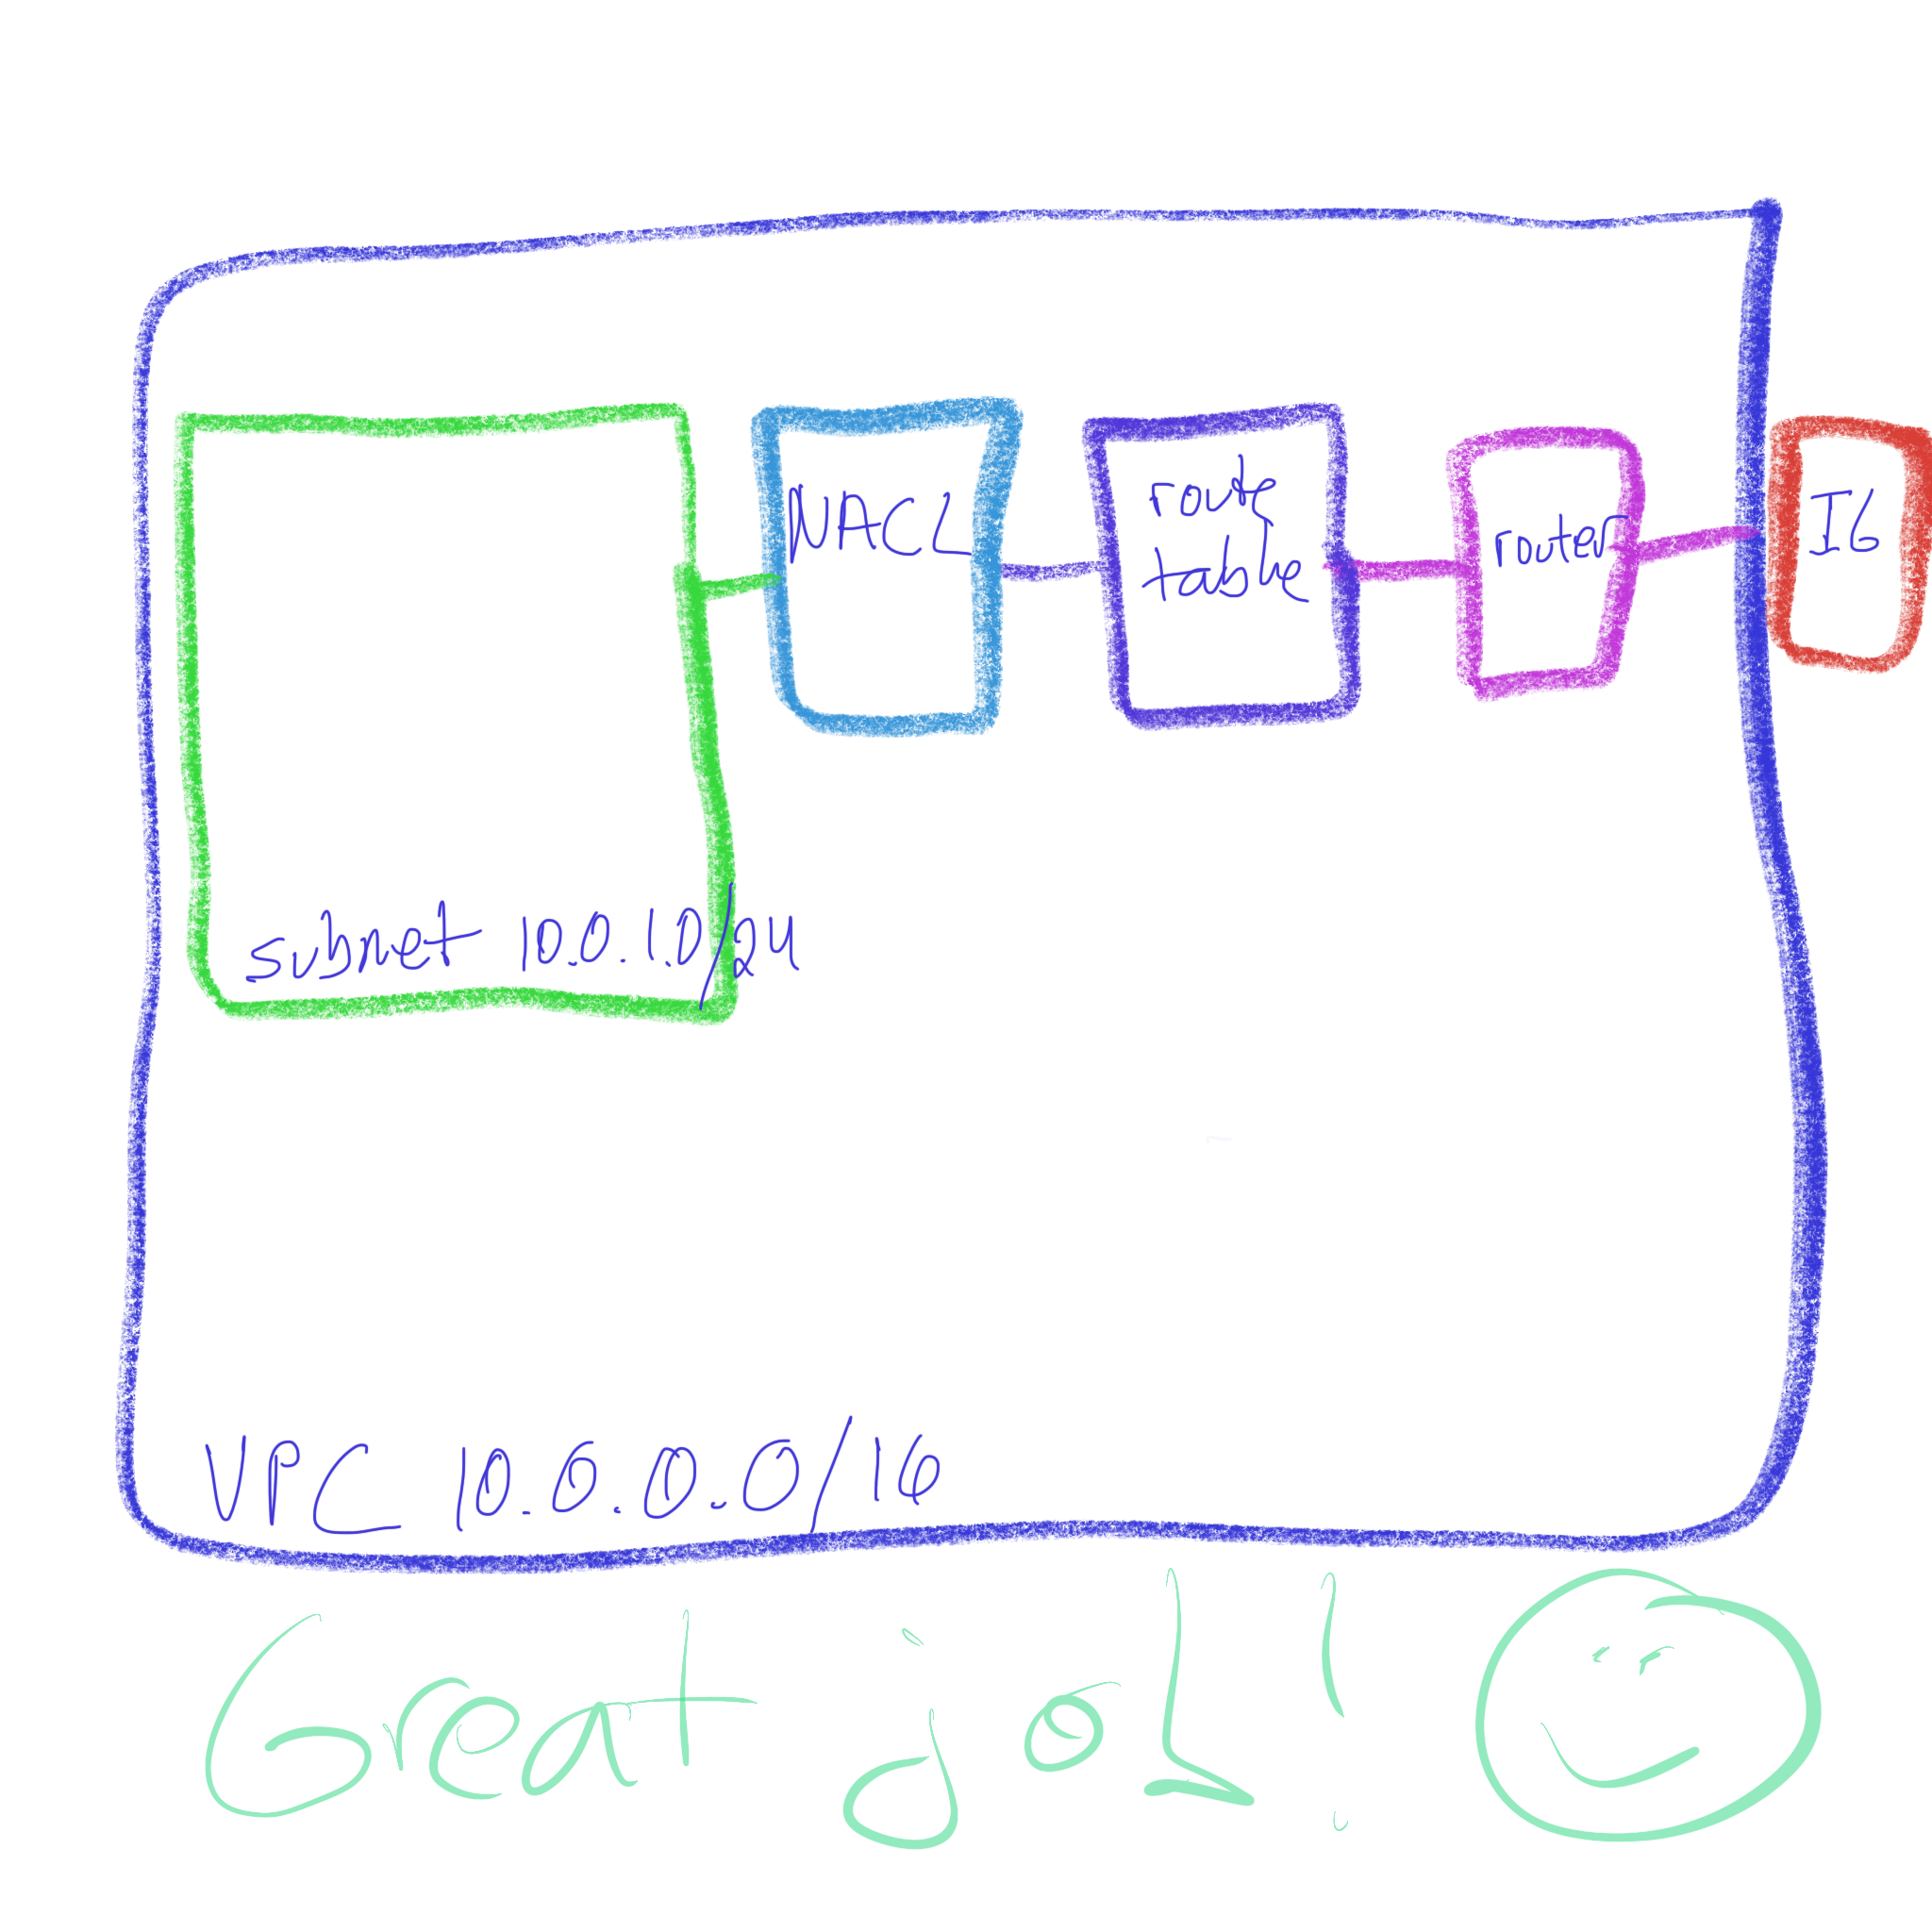 NACL
route
table
router
IG
subnet 10.0.1.0/24
VPC 10.0.0.0/16
Great job!